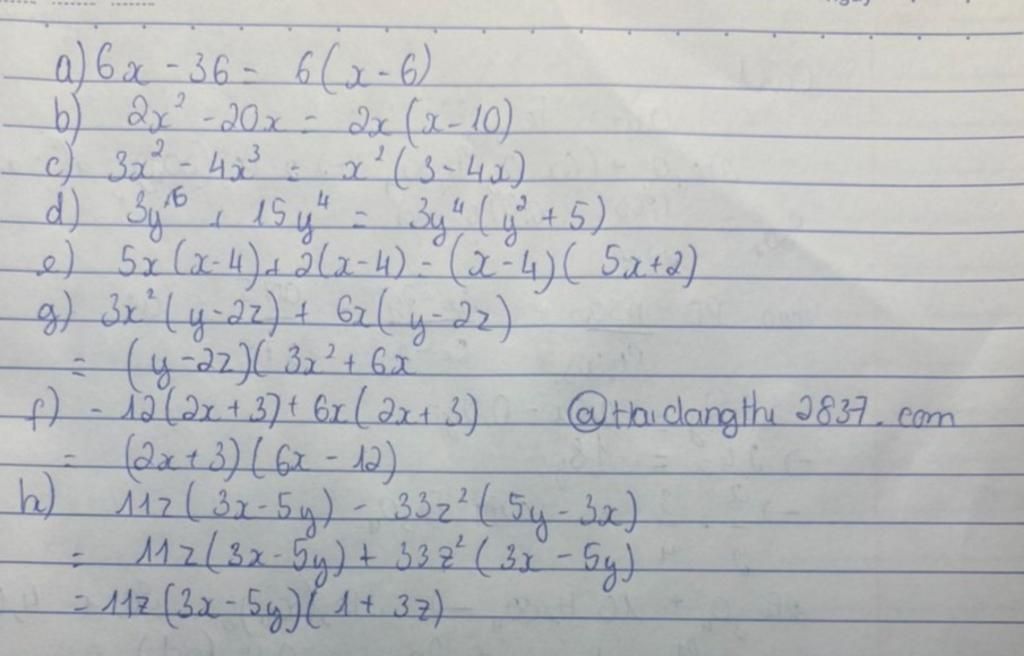 a) 6x - 36 = 6(x-6)
b) 2x² - 20x = 2x(x-10)
c) 3x² - 4x³ = x²(3-4x)
d) 3y⁶ + 15y⁴ = 3y⁴(y²+5)
e) 5x(x-4)+2(x-4) = (x-4)(5x+2)
g) 3x²(y-2z) + 6x(y-2z)
= (y-2z)(3x²+6x
f) -12(2x+3)+6x(2x+3) @Haidangthu2837.com
= (2x+3)(6x-12)
h) 11z(3x-5y) - 33z²(5y-3x)
= 11z(3x-5y) + 33z²(3x-5y)
= 11z(3x-5y)(1+3z)